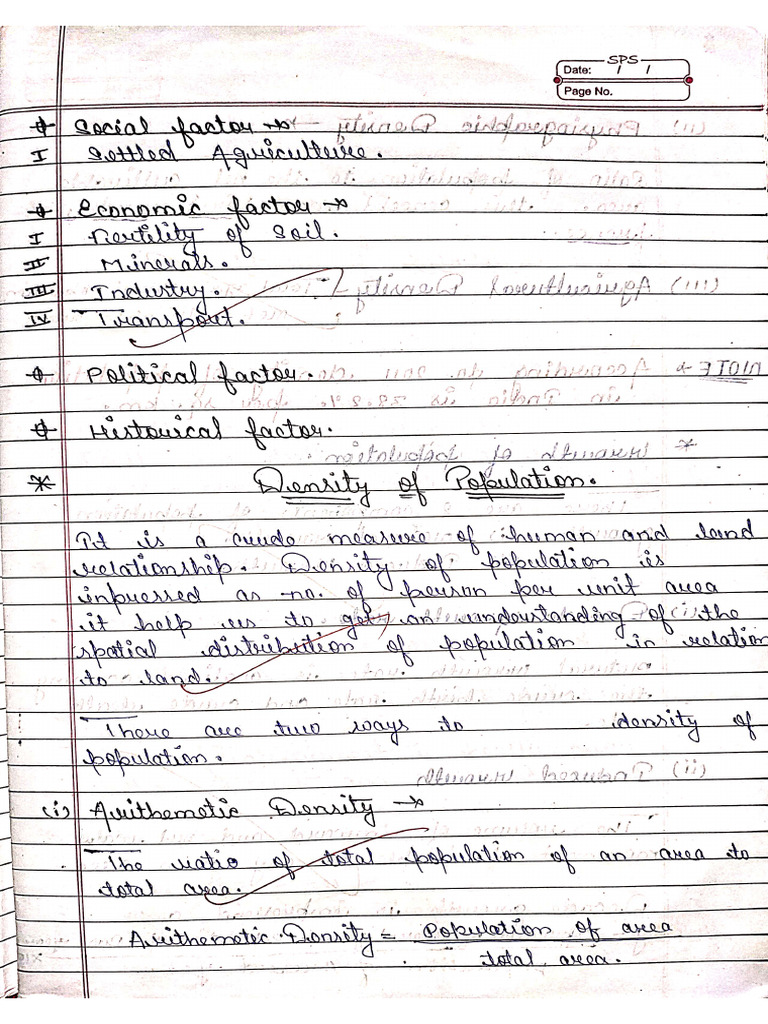 SPS
Date: / /
Page No.
Social factor →
I Settled Agriculture.
Economic factor →
I Fertility of Soil.
II Minerals.
III Industry.
IV Transport.
Political factor.
Historical factor.
* Density of Population.
It is a crude measure of human and land
relationship. Density of population is
inpressed as no. of person per unit area
it help us to get an understanding of the
spatial distribution of population in relation
to land.
There are two ways to density of
population.
(i) Arithemetic Density →
The ratio of total population of an area to
total area.
Arithemetic Density = Population of area
total area.